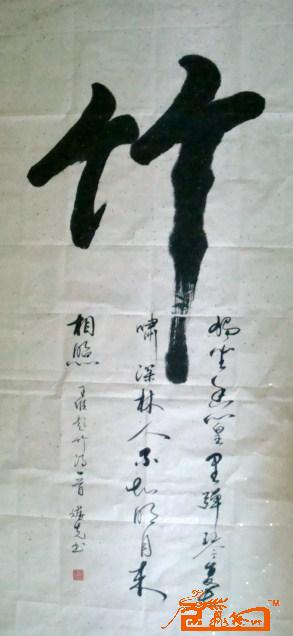 竹
独坐幽篁里弹琴复长
啸深林人不知明月来
相照
王维